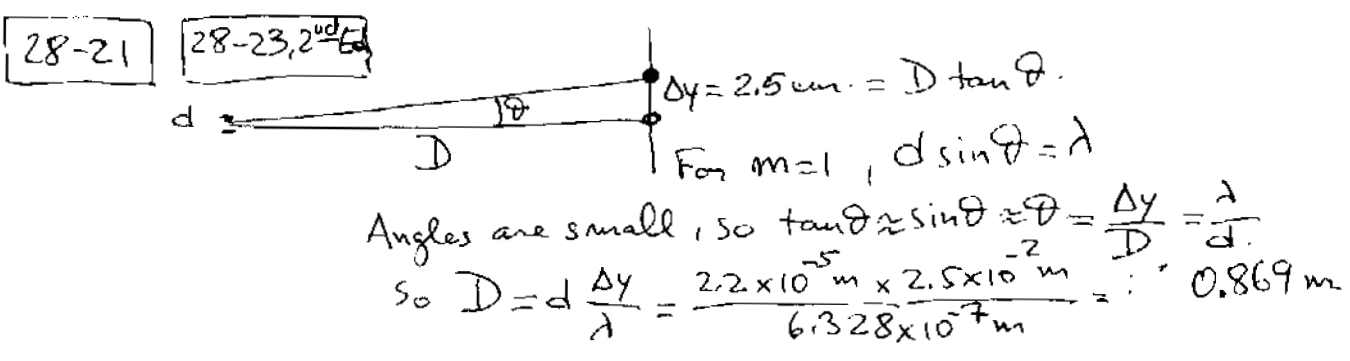 28-21 28-23, 2nd Ed
d θ Δy = 2.5 cm. = D tan θ.
D
For m=1, d sin θ = λ
Angles are small, so tan θ ≈ sin θ ≈ θ = Δy/D = λ/d.
So D = d Δy/λ = 2.2 × 10^-5 m × 2.5×10^-2 m / 6.328×10^-7 m = 0.869 m